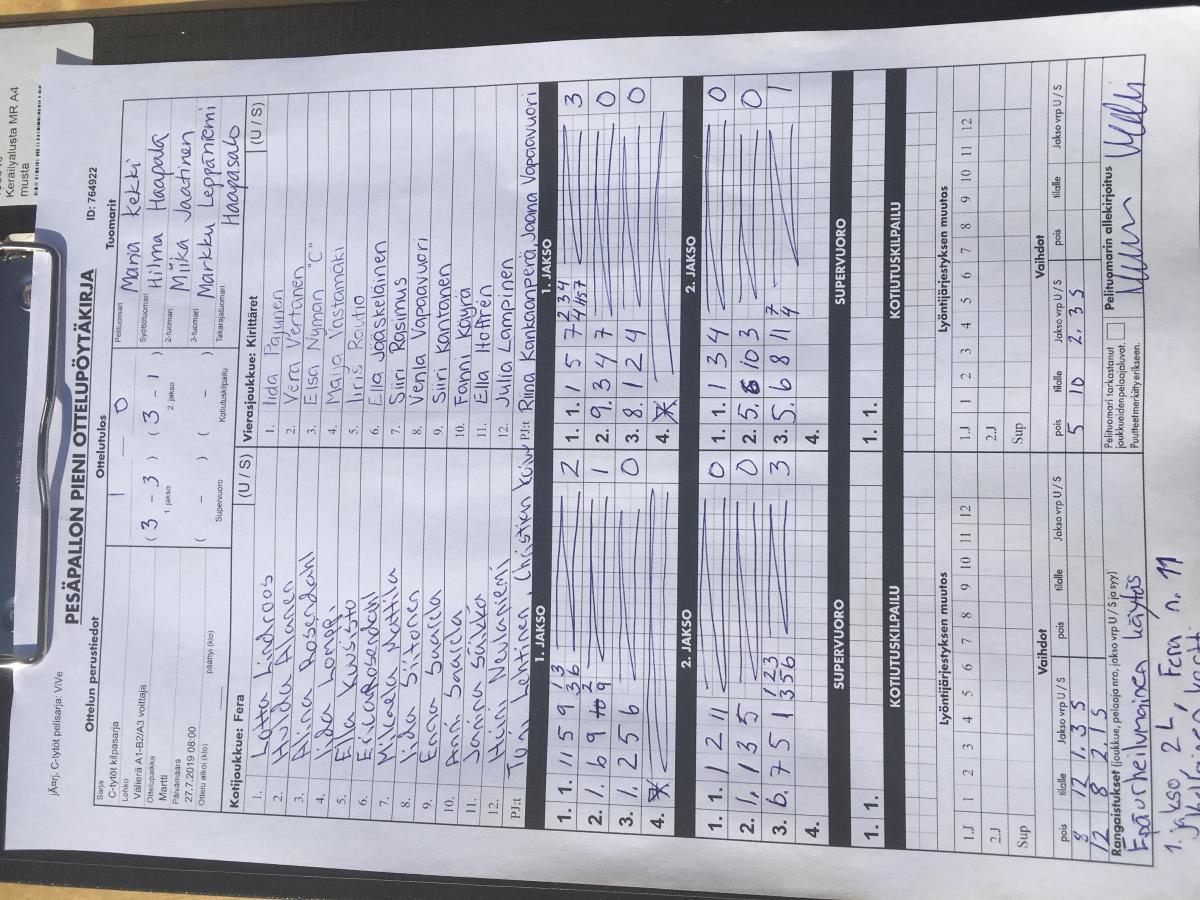 Keräilyalusta MR A4
musta
jÄ¤rj. C-tytöt pelisarja: ViVe
PESÄPALLON PIENI OTTELUPÖYTÄKIRJA
ID: 764922
Ottelun perustiedot
Sarja
C-tytöt kilpasarja
Lohko
Välierä A1-B2/A3 voittaja
Ottelupaikka
Martti
Päivämäärä
27.7.2019 08:00
Ottelu alkoi (klo) päättyi (klo)
Ottelutulos
1 0
( 3 - 3 ) ( 3 - 1 )
1. jakso 2. jakso
( - ) ( - )
Supervuoro Kotiutuskilpailu
Tuomarit
Pelituomari Maria Kekki
Syöttötuomari Hilma Haapala
2-tuomari Miika Jaatinen
3-tuomari Markku Leppäniemi
Takarajatuomari Haapasalo
Kotijoukkue: Fera (U / S)
1. Lotta Lindroos
2. Hulda Alanen
3. Alina Rosendahl
4. Iida Lomppi
5. Ella Kuusisto
6. Erica Rosendahl
7. Mikaela Mattila
8. Iida Siitonen
9. Emma Saarela
10. Anni Saarela
11. Janina Säikkä
12. Heini Neulaniemi
PJ:t Tuija Lehtinen, Christian
Vierasjoukke: Kirittäret (U / S)
1. Iida Pajunen
2. Vera Vertanen
3. Elsa Nyman "C"
4. Maija Vastamäki
5. Iiris Rauto
6. Ella Jääskeläinen
7. Siiri Rasimus
8. Venla Vapaavuori
9. Siiri Kantanen
10. Fanni Käyrä
11. Ella Hoffrén
12. Julia Lampinen
PJ:t Riina Kankaanperä, Jaana Vapaavuori
1. JAKSO
1. 1. 11 5 9 1 3 3 6 2
2. 1. 6 9 10 2 9 1
3. 1. 2 5 6 0
4.
1. JAKSO
1. 1. 1 5 7 2 3 4 4 5 7 3
2. 9. 3 4 7 0
3. 8. 1 2 4 0
4.
2. JAKSO
1. 1. 1 2 11 0
2. 1. 1 3 5 0
3. 6. 7 5 1 1 2 3 3 5 6 3
4.
2. JAKSO
1. 1. 1 3 4 0
2. 5. 6 10 3 0
3. 5. 6 8 11 7 4 1
4.
SUPERVUORO
1. 1.
SUPERVUORO
1. 1.
KOTIUTUSKILPAILU
KOTIUTUSKILPAILU
Lyöntijärjestyksen muutos
1.J 1 2 3 4 5 6 7 8 9 10 11 12
2.J
Sup
Lyöntijärjestyksen muutos
1.J 1 2 3 4 5 6 7 8 9 10 11 12
2.J
Sup
Vaihdot
pois tilalle Jakso vrp U / S pois tilalle Jakso vrp U / S
8 12 1. 3 5
12 8 2. 1 5
Vaihdot
pois tilalle Jakso vrp U / S pois tilalle Jakso vrp U / S
5 10 2. 3 5
Rangaistukset (joukkue, pelaaja nro, jakso vrp U / S ja syy)
Epäurheilumainen käytös
1. jakso 2L, Fera n. 11
Pelituomari tarkastanut
joukkueidenpelaajaluvat.
Puutteet merkitty erikseen.
Pelituomarin allekirjoitus